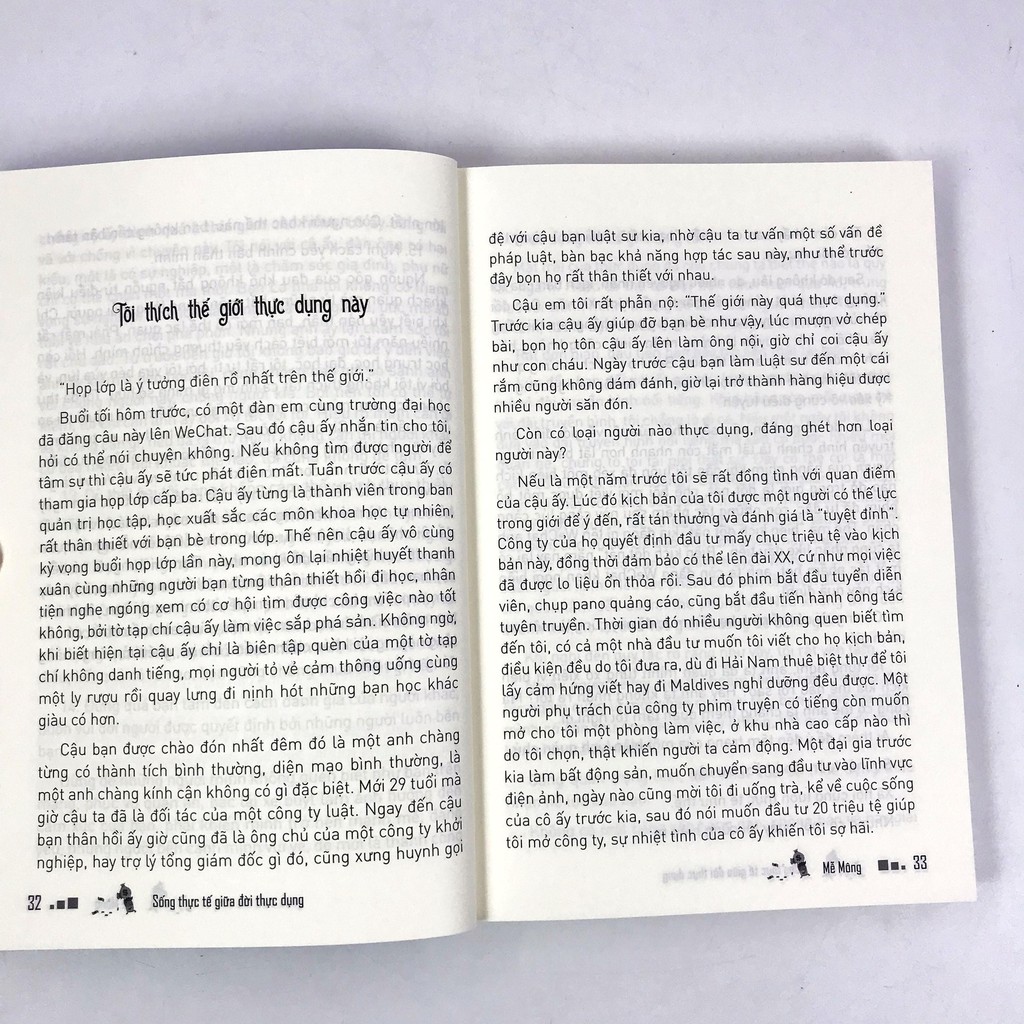 Tôi thích thế giới thực dụng này
“Họp lớp là ý tưởng điên rồ nhất trên thế giới.”
Buổi tối hôm trước, có một đàn em cùng trường đại học
đã đăng câu này lên WeChat. Sau đó cậu ấy nhắn tin cho tôi,
hỏi có thể nói chuyện không. Nếu không tìm được người để
tâm sự thì cậu ấy sẽ tức phát điên mất. Tuần trước cậu ấy có
tham gia họp lớp cấp ba. Cậu ấy từng là thành viên trong ban
quản trị học tập, học xuất sắc các môn khoa học tự nhiên,
rất thân thiết với bạn bè trong lớp. Thế nên cậu ấy vô cùng
kỳ vọng buổi họp lớp lần này, mong ôn lại nhiệt huyết thanh
xuân cùng những người bạn từng thân thiết hồi đi học, nhân
tiện nghe ngóng xem có cơ hội tìm được công việc nào tốt
không, bởi tờ tạp chí cậu ấy làm việc sắp phá sản. Không ngờ,
khi biết hiện tại cậu ấy chỉ là biên tập quèn của một tờ tạp
chí không danh tiếng, mọi người tỏ vẻ cảm thông uống cùng
một ly rượu rồi quay lưng đi nịnh hót những bạn học khác
giàu có hơn.
Cậu bạn được chào đón nhất đêm đó là một anh chàng
từng có thành tích bình thường, diện mạo bình thường, là
một anh chàng kính cận không có gì đặc biệt. Mới 29 tuổi mà
giờ cậu ta đã là đối tác của một công ty luật. Ngay đến cậu
bạn thân hồi ấy giờ cũng đã là ông chủ của một công ty khởi
nghiệp, hay trợ lý tổng giám đốc gì đó, cũng xưng huynh gọi
32
Sống thực tế giữa đời thực dụng
đệ với cậu bạn luật sư kia, nhờ cậu ta tư vấn một số vấn đề
pháp luật, bàn bạc khả năng hợp tác sau này, như thể trước
đây bọn họ rất thân thiết với nhau.
Cậu em tôi rất phẫn nộ: “Thế giới này quá thực dụng.”
Trước kia cậu ấy giúp đỡ bạn bè như vậy, lúc mượn vở chép
bài, bọn họ tôn cậu ấy lên làm ông nội, giờ chỉ coi cậu ấy
như con cháu. Ngày trước cậu bạn làm luật sư đến một cái
rắm cũng không dám đánh, giờ lại trở thành hàng hiệu được
nhiều người săn đón.
Còn có loại người nào thực dụng, đáng ghét hơn loại
người này?
Nếu là một năm trước tôi sẽ rất đồng tình với quan điểm
của cậu ấy. Lúc đó kịch bản của tôi được một người có thế lực
trong giới để ý đến, rất tán thưởng và đánh giá là “tuyệt đỉnh”.
Công ty của họ quyết định đầu tư mấy chục triệu tệ vào kịch
bản này, đồng thời đảm bảo có thể lên đài XX, cứ như mọi việc
đã được lo liệu ổn thỏa rồi. Sau đó phim bắt đầu tuyển diễn
viên, chụp pano quảng cáo, cũng bắt đầu tiến hành công tác
tuyên truyền. Thời gian đó nhiều người không quen biết tìm
đến tôi, có cả một nhà đầu tư muốn tôi viết cho họ kịch bản,
điều kiện đều do tôi đưa ra, dù đi Hải Nam thuê biệt thự để tôi
lấy cảm hứng viết hay đi Maldives nghỉ dưỡng đều được. Một
người phụ trách của công ty phim truyện có tiếng còn muốn
mở cho tôi một phòng làm việc, ở khu nhà cao cấp nào thì
do tôi chọn, thật khiến người ta cảm động. Một đại gia trước
kia làm bất động sản, muốn chuyển sang đầu tư vào lĩnh vực
điện ảnh, ngày nào cũng mời tôi đi uống trà, kể về cuộc sống
của cô ấy trước kia, sau đó nói muốn đầu tư 20 triệu tệ giúp
tôi mở công ty, sự nhiệt tình của cô ấy khiến tôi sợ hãi.
Mễ Mông
33